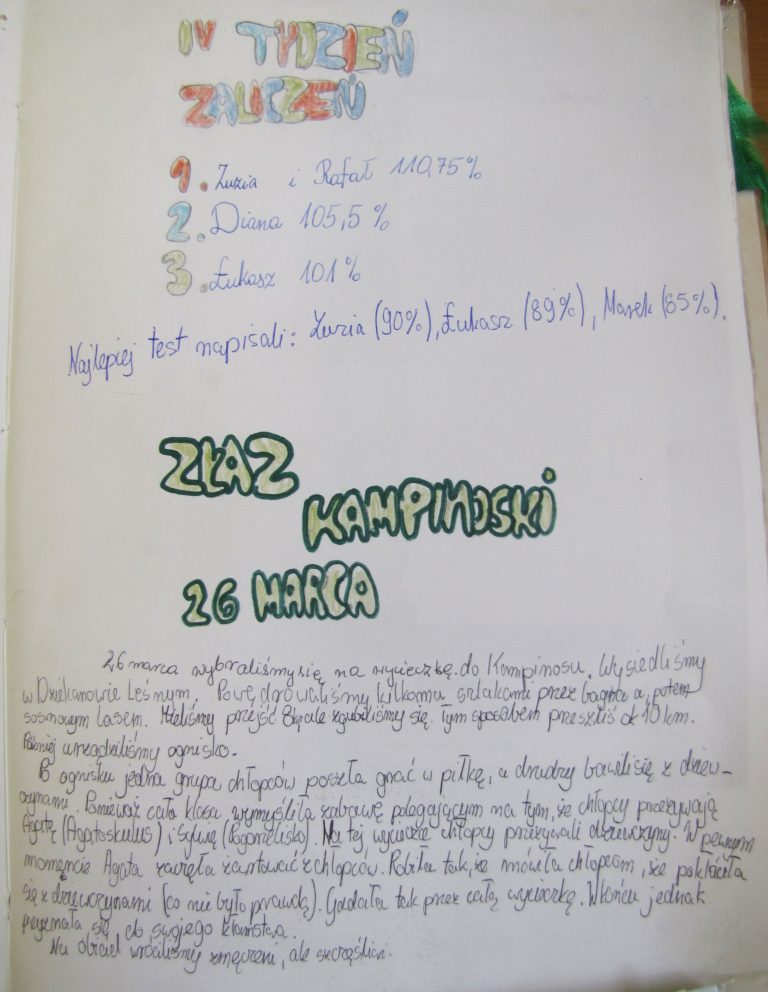 IV TYDZIEŃ
ZALICZEŃ
1. Zuzia i Rafał 110,75%
2. Diana 105,5%
3. Łukasz 101%
Najlepiej test napisali: Zuzia (90%), Łukasz (89%), Marek (85%).
ZŁAZ
KAMPINOSKI
26 MARCA
26 marca wybraliśmy się na wycieczkę do Kampinosu. Wysiedliśmy
w Dziekanowie Leśnym. Powędrowaliśmy kilkoma szlakami przez bagna a, potem
sosnowym lasem. Mieliśmy przejść 8 km ale zgubiliśmy się. Tym sposobem przeszliśmy ok 10 km.
Później urządziliśmy ognisko.
Po ognisku jedna grupa chłopców poszła grać w piłkę, a drudzy bawili się z dziew-
czynami. Ponieważ cała klasa wymyśliła zabawę polegającym na tym, że chłopcy przezywają
Agatę (Agatoskulus) i Sylwię (Pogorzelisko). Na tej, wycieczce chłopcy przezywali dziewczyny. W pewnym
momencie Agata zaczęła żartować z chłopców. Robiła tak, że mówiła chłopcom, że pokłóciła
się z dziewczynami (co nie było prawdą). Gadała tak przez całą wycieczkę. W końcu jednak
przyznała się do swojego kłamstwa.
Na obiad wróciliśmy zmęczeni, ale szczęśliwi.